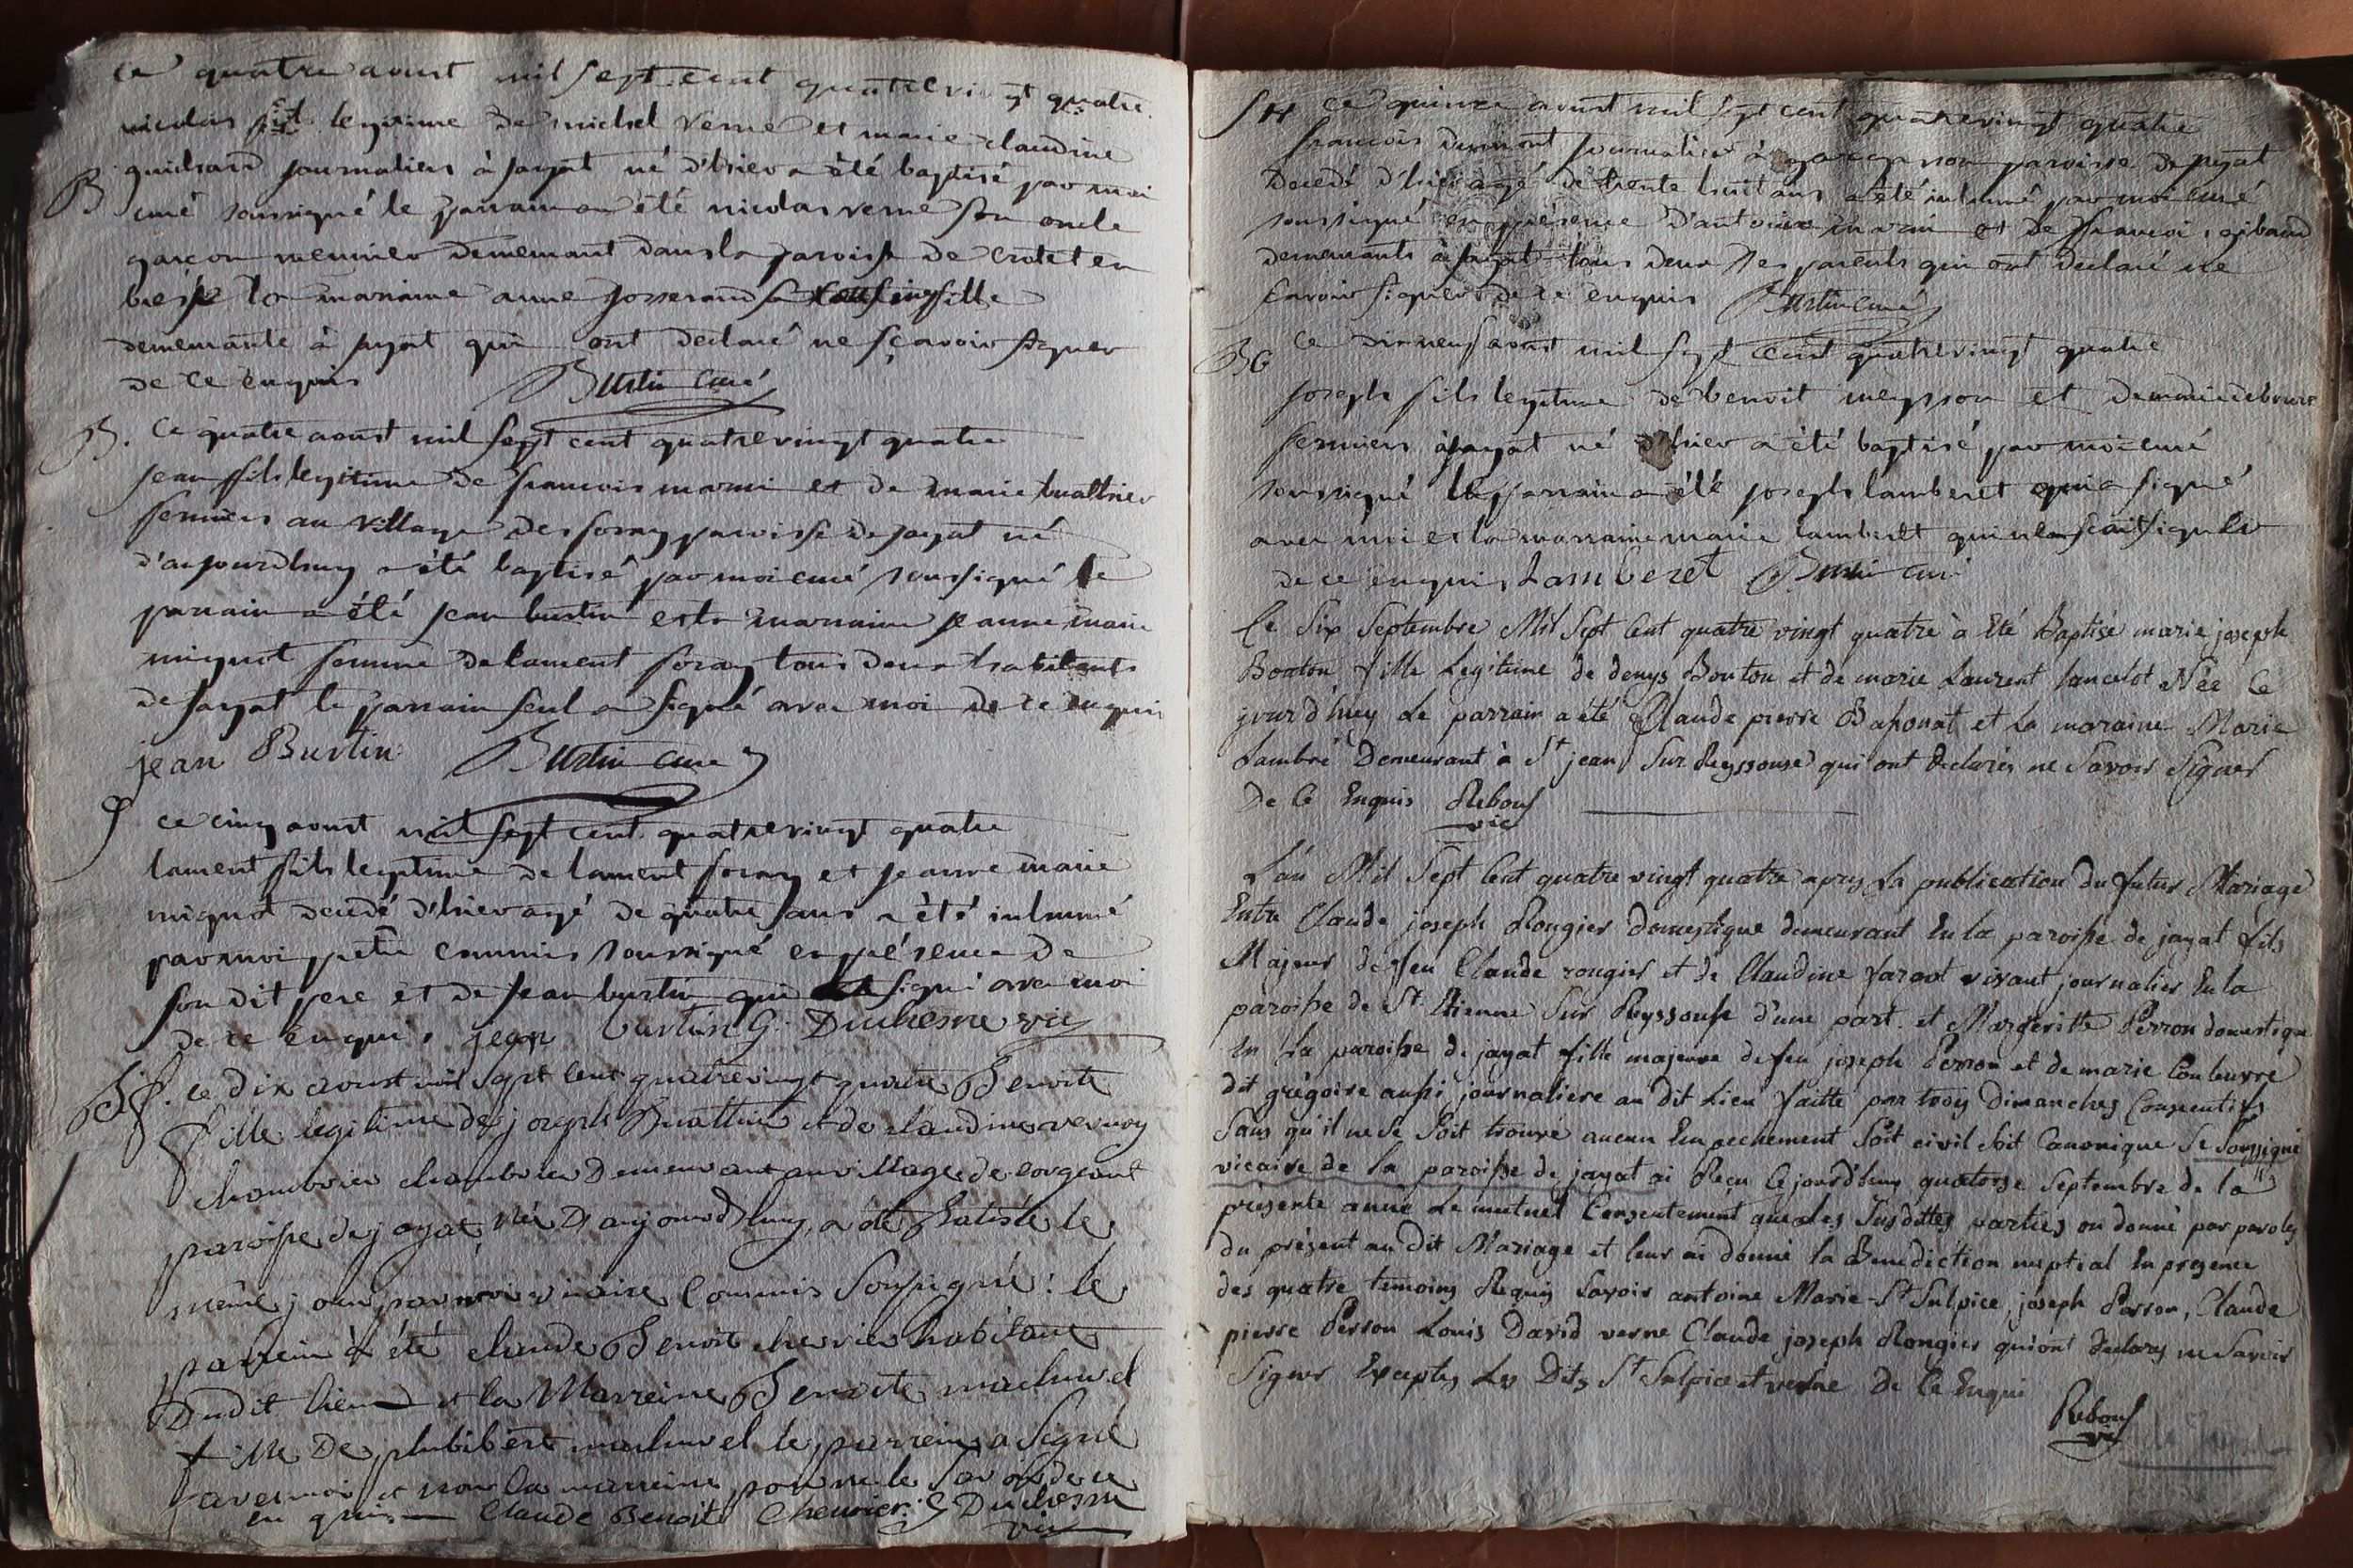 ce quatre aoust mil sept cent quatrevingt quatre
nicolas fils legitime de michel verne et marie claudine
guilhard journaliers à jayat né d'hier a été baptisé par moi
B curé soussigné le parrain a été nicolas verne son oncle
garçon meunier demeurant dans la paroisse de crotet en
bresse la marraine anne josserand fille
demeurante à jayat qui ont declaré ne sçavoir signer
de ce enquis Burtin curé
B. Ce quatre aoust mil sept cent quatrevingt quatre
jean fils legitime de francois marmi et de marie buathier
fermiers au village des foray paroisse de jayat né
d'aujourdhuy a été baptisé par moi curé soussigné le
parrain a été jean burtin et la marraine jeanne marie
mignot femme de laurent foray tous deux habitants
de jayat le parrain seul a signé avec moi de ce enquis
jean Burtin Burtin curé
ce cinq aoust mil sept cent quatrevingt quatre
laurent fils legitime de laurent foray et jeanne marie
mignot decedé d'hier agé de quatre ans a été inhumé
par moi pretre commis soussigné en présence de
son dit pere et de jean burtin qui signé avec moi
de ce enquis jean burtin G. Duchesne vic
ce dix aoust mil sept cent quatrevingt quatre Benoite
fille legitime de joseph Buathier et de claudine vernoy
chambrier demeurant au village de corgeant
paroisse de jayat née d'aujourdhuy, a été Batisée le
même jour par moi vicaire Commis Soussigné: le
parrein à été claude Benoit chevrier habitant
Dudit lieu et la Marreine Benoite machurel
fille De philibert machurel le parrein a Signé
avec moi et non la marreine pour ne le savoir de ce
enquis Claude Benoit Chevrier. G Duchesne
vic
SH ce quinze aoust mil sept cent quatrevingt quatre
francois dumont journalier à paroisse de jayat
decedé d'hier agé de trente huit ans a été inhumé par moi curé
soussigné en présence d'antoine et de francois gibaud
demeurants à jayat tous deux ses parents qui ont declaré ne
savoir signer de ce enquis Burtin curé
BG Ce dixneuf aoust mil sept cent quatrevingt quatre
joseph fils legitime de benoit meysson et
fermiers à jayat né d'hier a été baptisé par moi curé
soussigné le parrain a été joseph lamberet qui a signé
avec moi et la marraine marie lamberet qui ne scait signer
de ce enquis Lamberet Burtin curé
Ce Six Septembre Mil Sept Cent quatre vingt quatre à Eté Baptisé marie joseph
Bouton fille Legitime de denys Bouton et de marie Laurent lancelot Née Ce
jourd'huy Le parrain a été Claude pierre Bahonat et La maraine Marie
Lambré Demeurant à St jean Sur Reyssouse qui ont declarés ne Savoir Signer
De Ce Enquis Rebouf
vic
L'an Mil Sept Cent quatre vingt quatre apres La publication du futur Mariage
Entre Claude joseph Rougier domestique demeurant En la paroisse de jayat fils
Majeur de feu Claude rougier et de Claudine varoot vivant journalier En la
paroisse de St Etienne Sur Reyssouse d'une part. et Margeritte Perron domestique
En La paroisse de jayat fille majeure de feu joseph Perron et de marie Couleuvre
dit grégoire aussi journaliere au dit Lieu faitte par trois dimanches Consecutifs
Sans qu'il ne Se Soit trouvé aucun Empechement Soit civil Soit Canonique Je Soussigné
vicaire de la paroisse de jayat ai Reçu Ce jourd'huy quatorse Septembre de la
présente année Le mutuel Consentement que Les Susdittes parties on donné par paroles
du présent au dit Mariage et leur ai donné la Benediction nuptial En presence
des quatre temoins Requis Savoir antoine Marie-St Sulpice, joseph Perron, Claude
pierre Perron Louis David verne Claude joseph Rougier qui ont declares ne Savoir
Signer Exceptes Les Dits St Sulpice et verne De Ce Enqui
Rebouf
vic